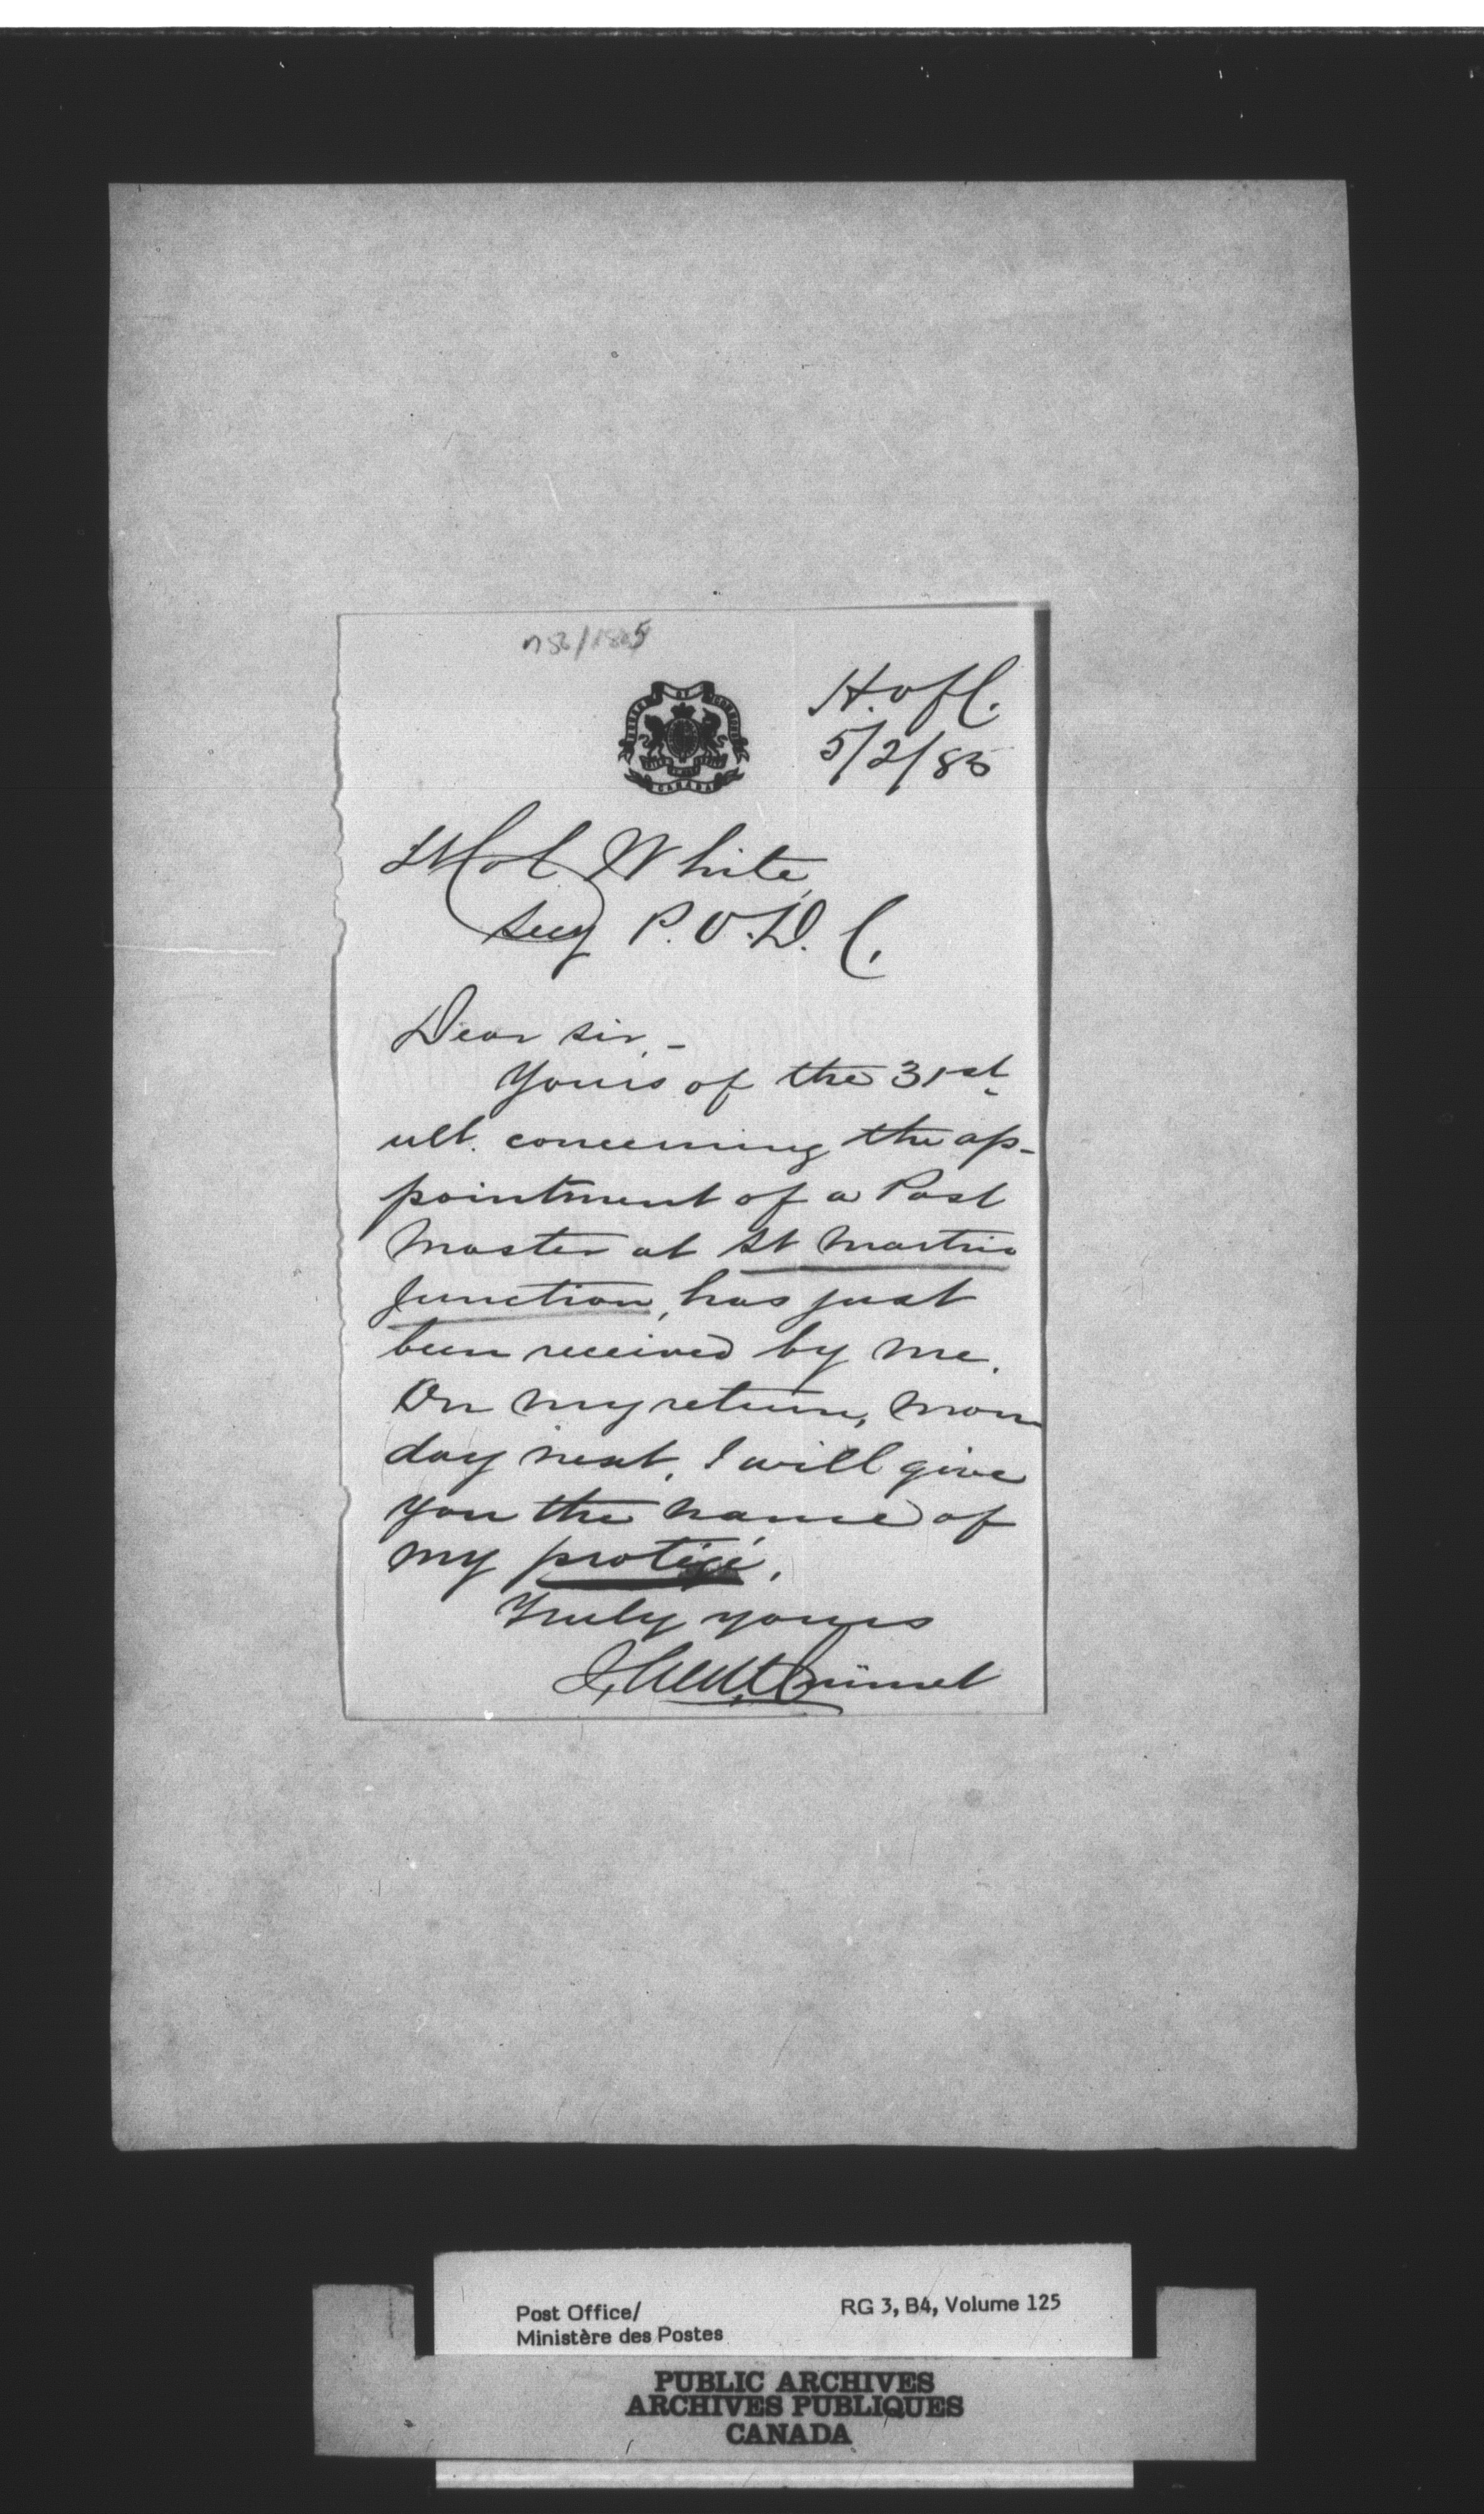 H. of C.
5/2/85
CANADA
Wm White,
Secy P.O.D. C.
Dear Sir,-
Yours of the 31st
ult. concerning the ap-
pointment of a Post
Master at St Martins
Junction, has just
been received by me.
On my return, Mon
day next, I will give
you the name of
my protégé.
Truly yours
Ouimet
Post Office/
Ministère des Postes
RG 3, B4, Volume 125
PUBLIC ARCHIVES
ARCHIVES PUBLIQUES
CANADA